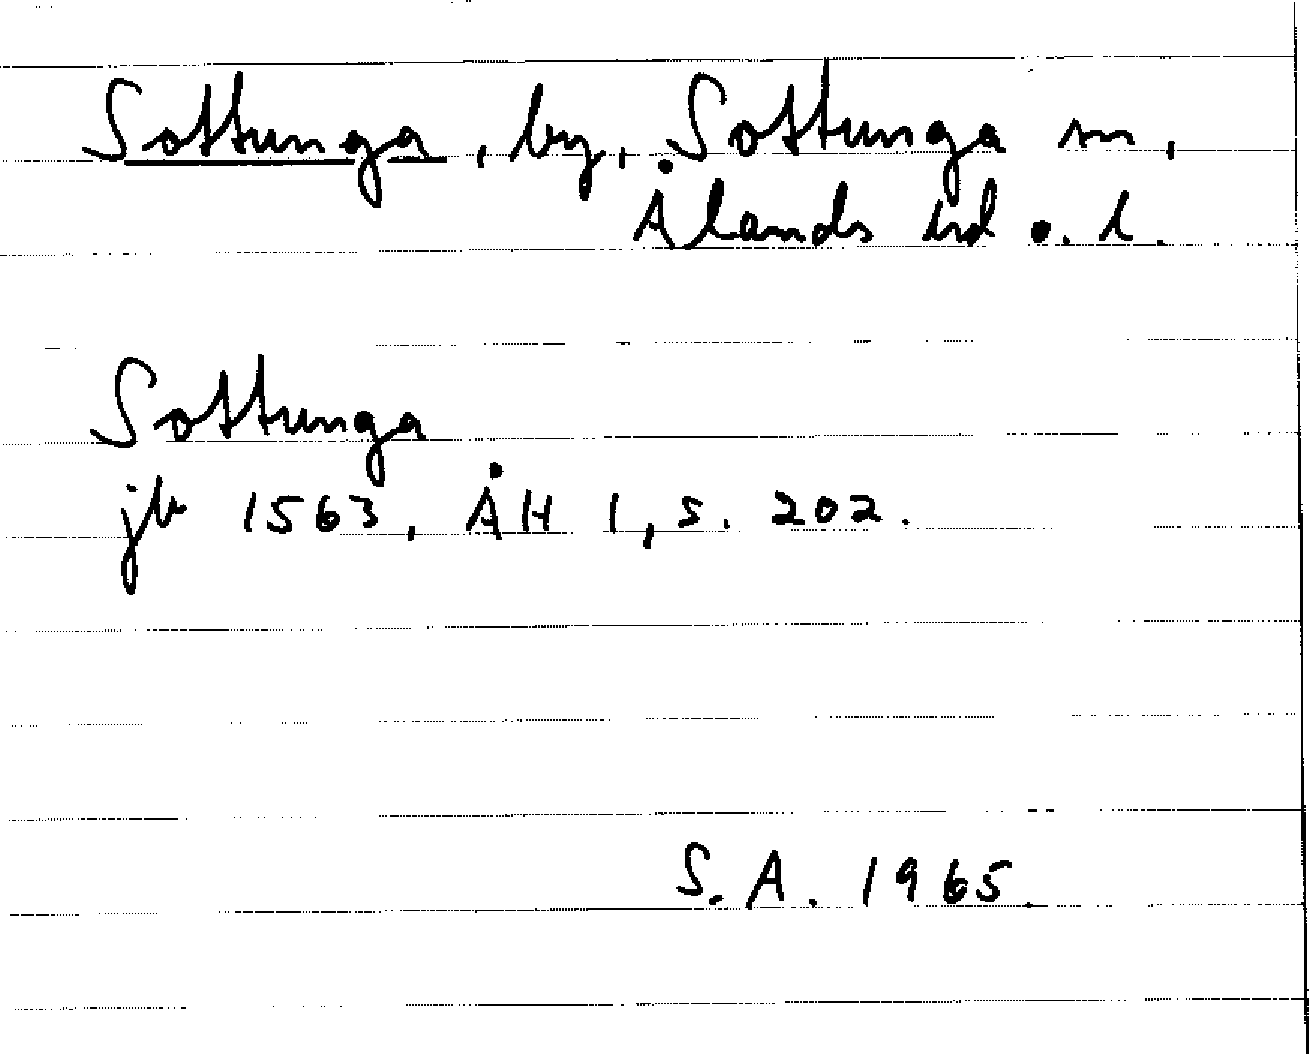 Sottunga, by, Sottunga sn,
Ålands hd o. l.
Sottunga
jb 1563, ÅH 1, s. 202.
S. A. 1965.